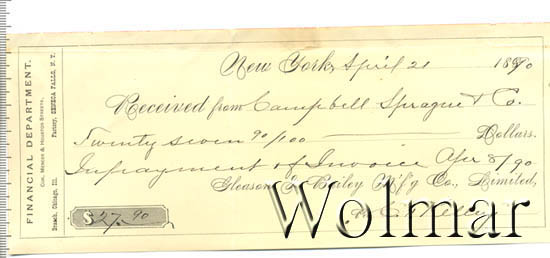 FINANCIAL DEPARTMENT.
COR. MERCER & HOUSTON STREETS.
Branch, Chicago, Ill. Factory, SENECA FALLS, N.Y.
New York, April 21 1890
Received from Campbell Sprague & Co.
Twenty seven 90/100 Dollars.
In payment of Invoice Apr 8/90
Gleason & Bailey M'f'g Co., Limited,
$27.90
Wolmar